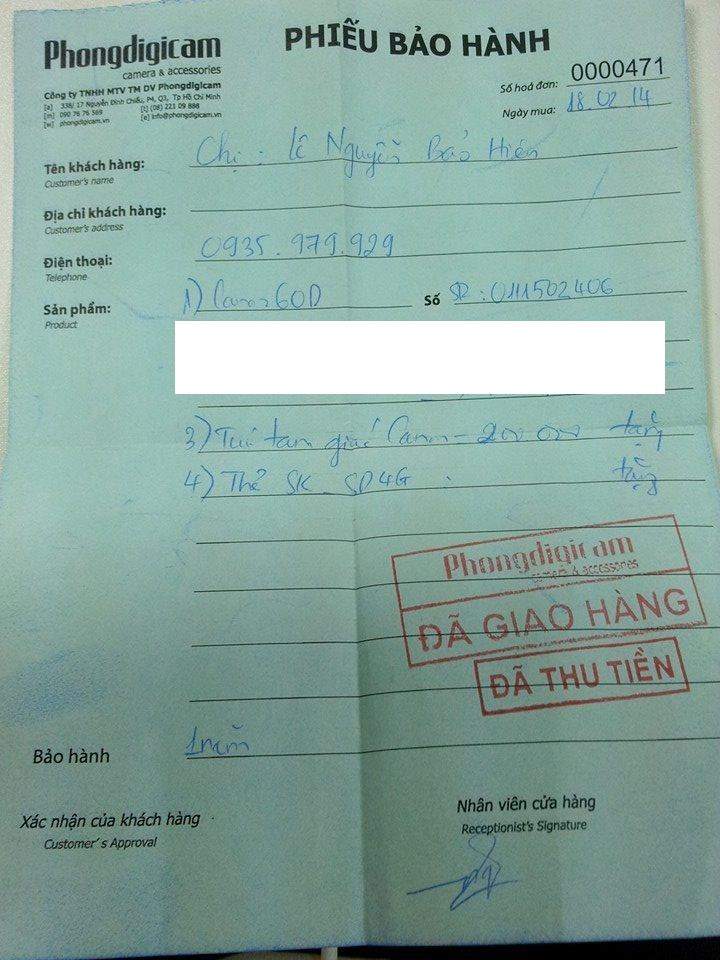 Phongdigicam
camera & accessories
Công ty TNHH MTV TM DV Phongdigicam
[a] 338/ 17 Nguyễn Đình Chiểu, P4, Q3, Tp Hồ Chí Minh
[m] 090 76 76 569 [t] (08) 221 09 888
[w] phongdigicam.vn [e] info@phongdigicam.vn
PHIẾU BẢO HÀNH
Số hoá đơn: 0000471
Ngày mua: 18.02.14
Tên khách hàng: Chị : Lê Nguyễn Bảo Hiền
Customer's name
Địa chỉ khách hàng:
Customer's address
Điện thoại: 0935.979.929
Telephone
Sản phẩm: 1) Canon 60D Số SR: 0111502406
Product
3) Túi tam giác Canon - 200 000 tặng
4) Thẻ SK SD4G tặng
Phongdigicam
camera & accessories
ĐÃ GIAO HÀNG
ĐÃ THU TIỀN
Bảo hành 1 năm
Xác nhận của khách hàng
Customer's Approval
Nhân viên cửa hàng
Receptionist's Signature